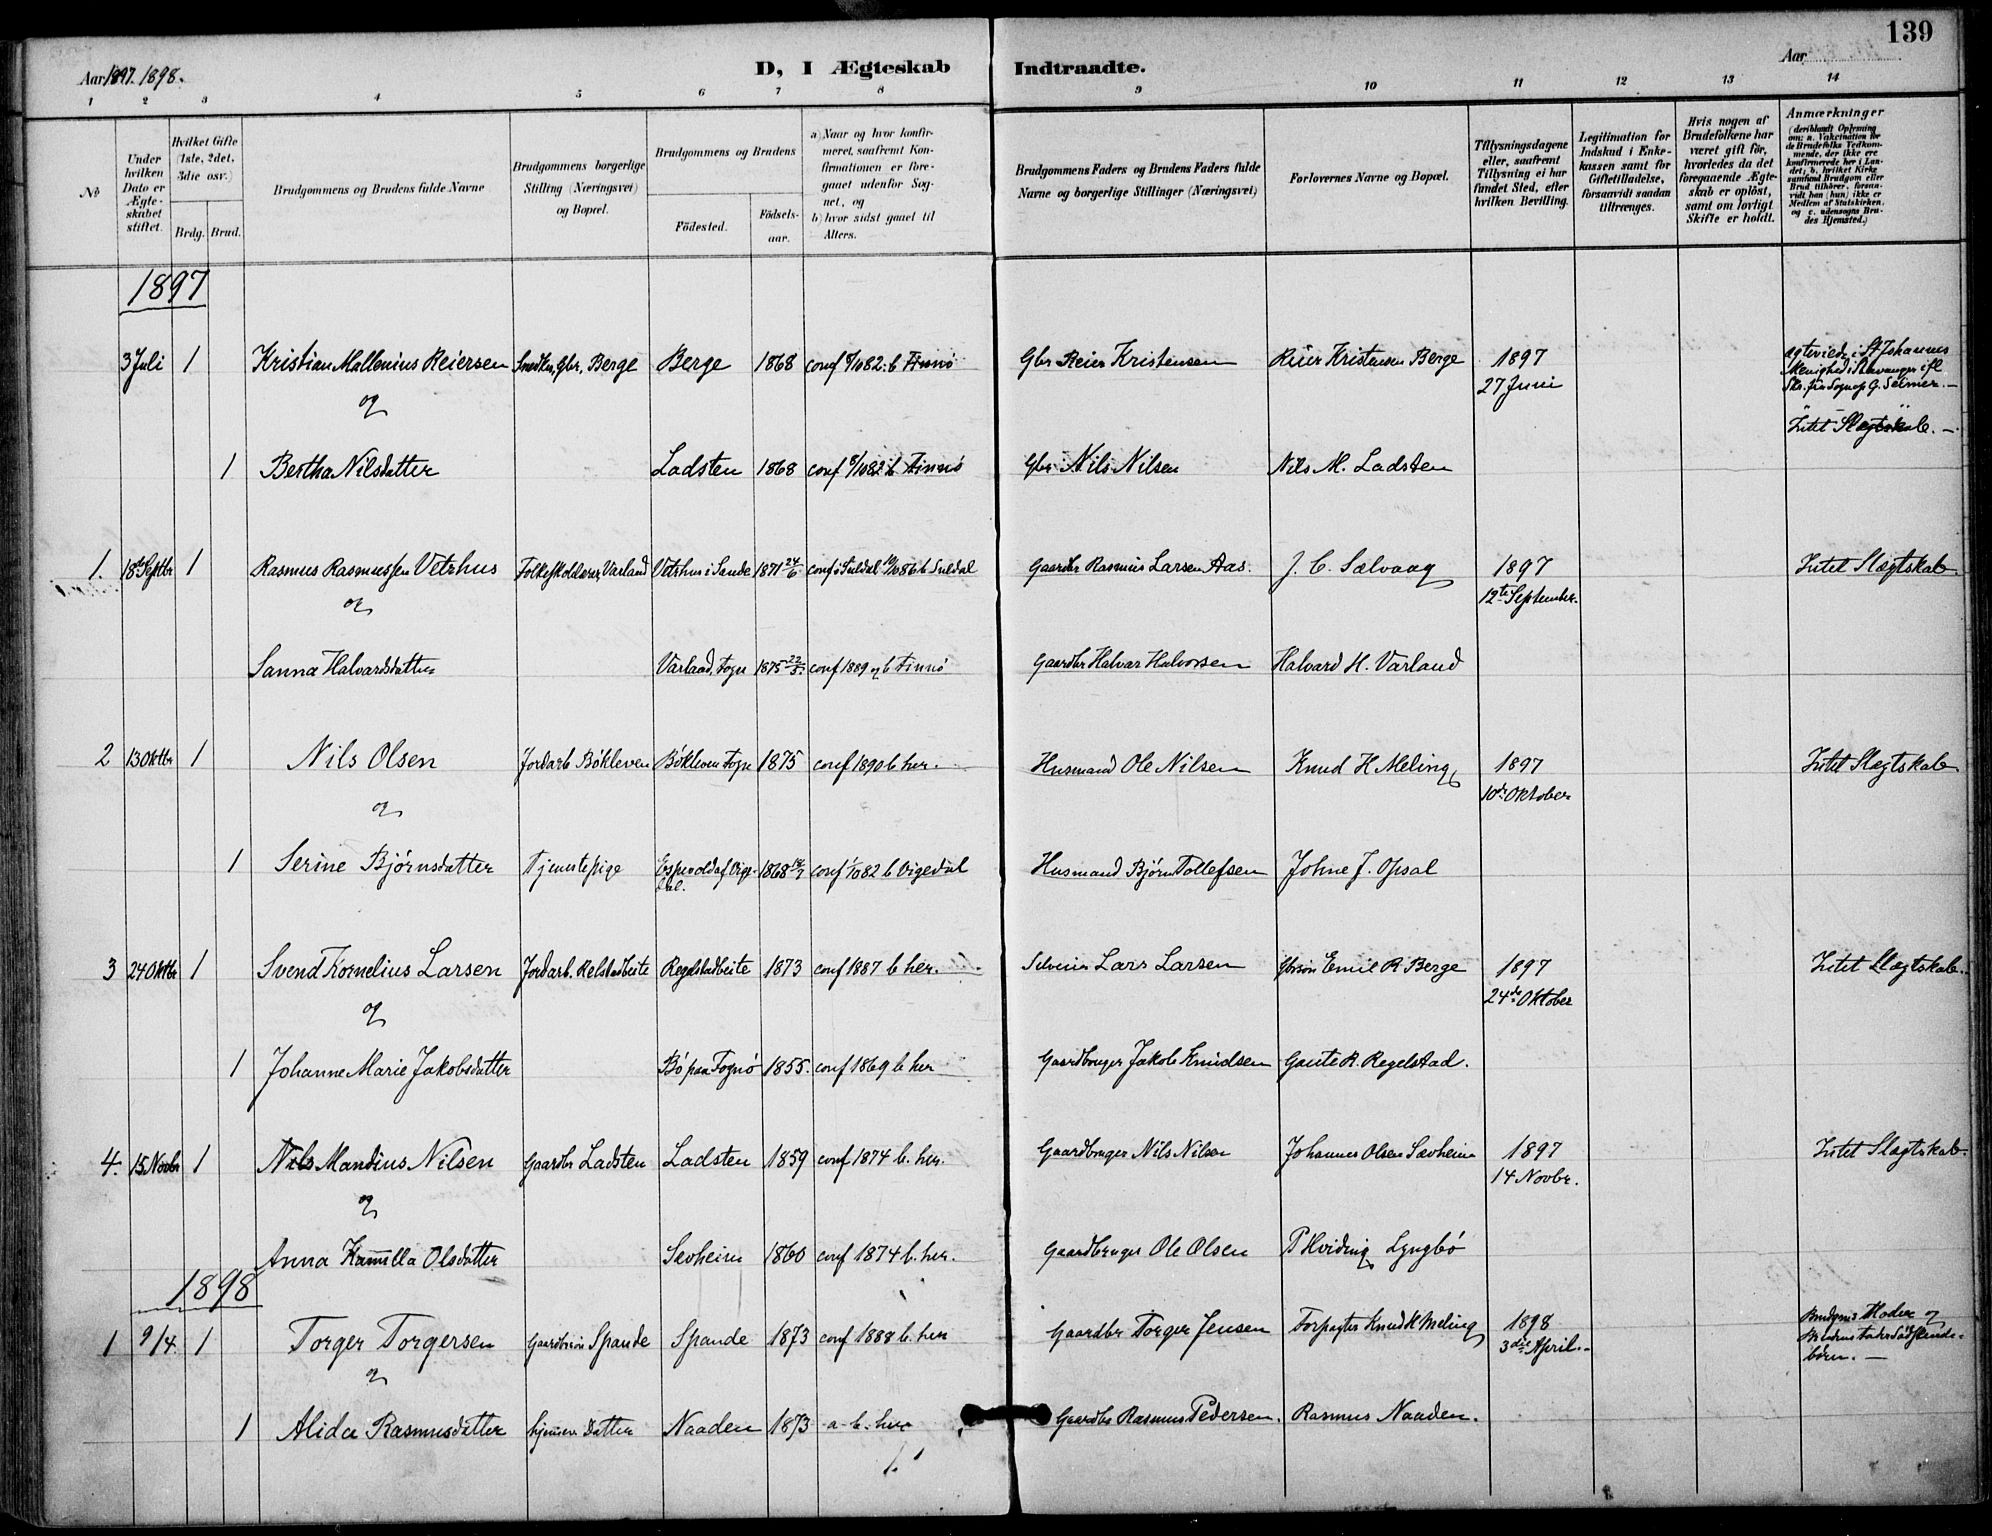 139
Aar 1897. 1898.
D, I Ægteskab Indtraadte.
Aar
1 2 3 4 5 6 7 8 9 10 11 12 13 14
№
Under hvilken Dato er Ægteskabet stiftet.
Hvilket Gifte (1ste, 2det, 3die osv.)
Brdg. Brud.
Brudgommens og Brudens fulde Navne
Brudgommens borgerlige Stilling (Næringsvei) og Bopæl.
Brudgommens og Brudens
Födested. Födselsaar.
a) Naar og hvor konfirmeret, saafremt Konfirmationen er foregaaet udenfor Sognet, og
b) hvor sidst gaaet til Alters.
Brudgommens Faders og Brudens Faders fulde Navne og borgerlige Stillinger (Næringsvei)
Forlovernes Navne og Bopæl.
Tillysningsdagene eller, saafremt Tillysning ei har fundet Sted, efter hvilken Bevilling.
Legitimation for Indskud i Enkekassen samt for Giftetilladelse, forsaavidt saadan tiltrænges.
Hvis nogen af Brudefolkene har været gift för, hvorledes da det foregaaende Ægteskab er oplöst, samt om lovligt Skifte er holdt.
Anmærkninger
(deriblandt Oplysning om: a. Vakcination for de Brudefolks Vedkommende, der ikke ere konfirmerede her i Landet; b. hvilket Kirkesamfund Brudgom eller Brud tilhörer, forsaavidt han (hun) ikke er Medlem af Statskirken, og c. udensogns Brudes Hjemsted.)
1897
3 Juli 1 Kristian Mallenius Reiersen Snedker, Gbr. Berge Berge 1868 conf 8/10 82. b Finnö Gbr Reier Kristensen Reier Kristensen Berge 1897 27 Juni
Ægteviede i St Johannes
Menighed i Stavanger ifl
Skr. fra Sognep G. Seimer. —
Intet Slægtskab. —
og
1 Bertha Nilsdatter Ladsten 1868 conf 8/10 82 b Finnö Gbr Nils Nilsen Nils M. Ladsten
1. 18de Septbr 1 Rasmus Rasmussen Vetrhus Folkeskolelærer Varland Vetrhus i Sande 1871 24/6 conf i Suldal 10/10 86 b Suldal Gaardbr Rasmus Larsen Aas. J. C. Sælvaag 1897 12te September. Intet Slægtskab.
og
Sanna Halvardsdatter Varland, Fogn 1875 22/5. conf 1889 og b Finnö Gaardbr Halvar Halvorsen Halvard H. Varland
2 13 Oktbr 1 Nils Olsen Jordarb Bökleven Bökleven Fogn 1875 conf 1890 b her. Husmand Ole Nilsen Knud H Meling 1897 10de Oktober Intet Slægtskab.
og
1 Serine Björnsdatter Tjenestepige 1868 conf 1/10 82 b Vigedal Husmand Björn Tollefsen Johne J. Opsal
3 24 Oktbr 1 Svend Kornelius Larsen Jordarb. Relstadbeite Regelstadbeite 1873 conf 1887 b her. Selveier Lars Larsen Gbrsön Emil R Berge 1897 24de Oktober Intet Slægtskab.
og
1 Johanne Marie Jakobsdatter Bö paa Fognö 1855. conf 1869 b her Gaardbruger Jakob Knudsen Gaute R. Regelstad.
4. 15 Novbr 1 Nils Mandius Nilsen Gaardbr Ladsten Ladsten 1859 conf 1874 b. her. Gaardbruger Nils Nilsen Johannes Olsen Sævheim 1897 14 Novbr. Intet Slægtskab.
og
Anna Kamilla Olsdatter Sevheim 1860 conf 1874 b. her. Gaardbruger Ole Olsen P Hviding Lyngbö
1898
1 9/4. 1 Torger Torgersen Gaardbrsön Spande Spande 1873 conf 1888 b. her Gaardbr Torger Jensen Forpagter Knud H Meling 1898 3die April. Brudgoms Moder og
Brudens
börn. —
og
1 Alida Rasmusdatter hjemmev Datter Naaden 1873 a - b. her Gaardbr Rasmus Pedersen. Rasmus Naaden.